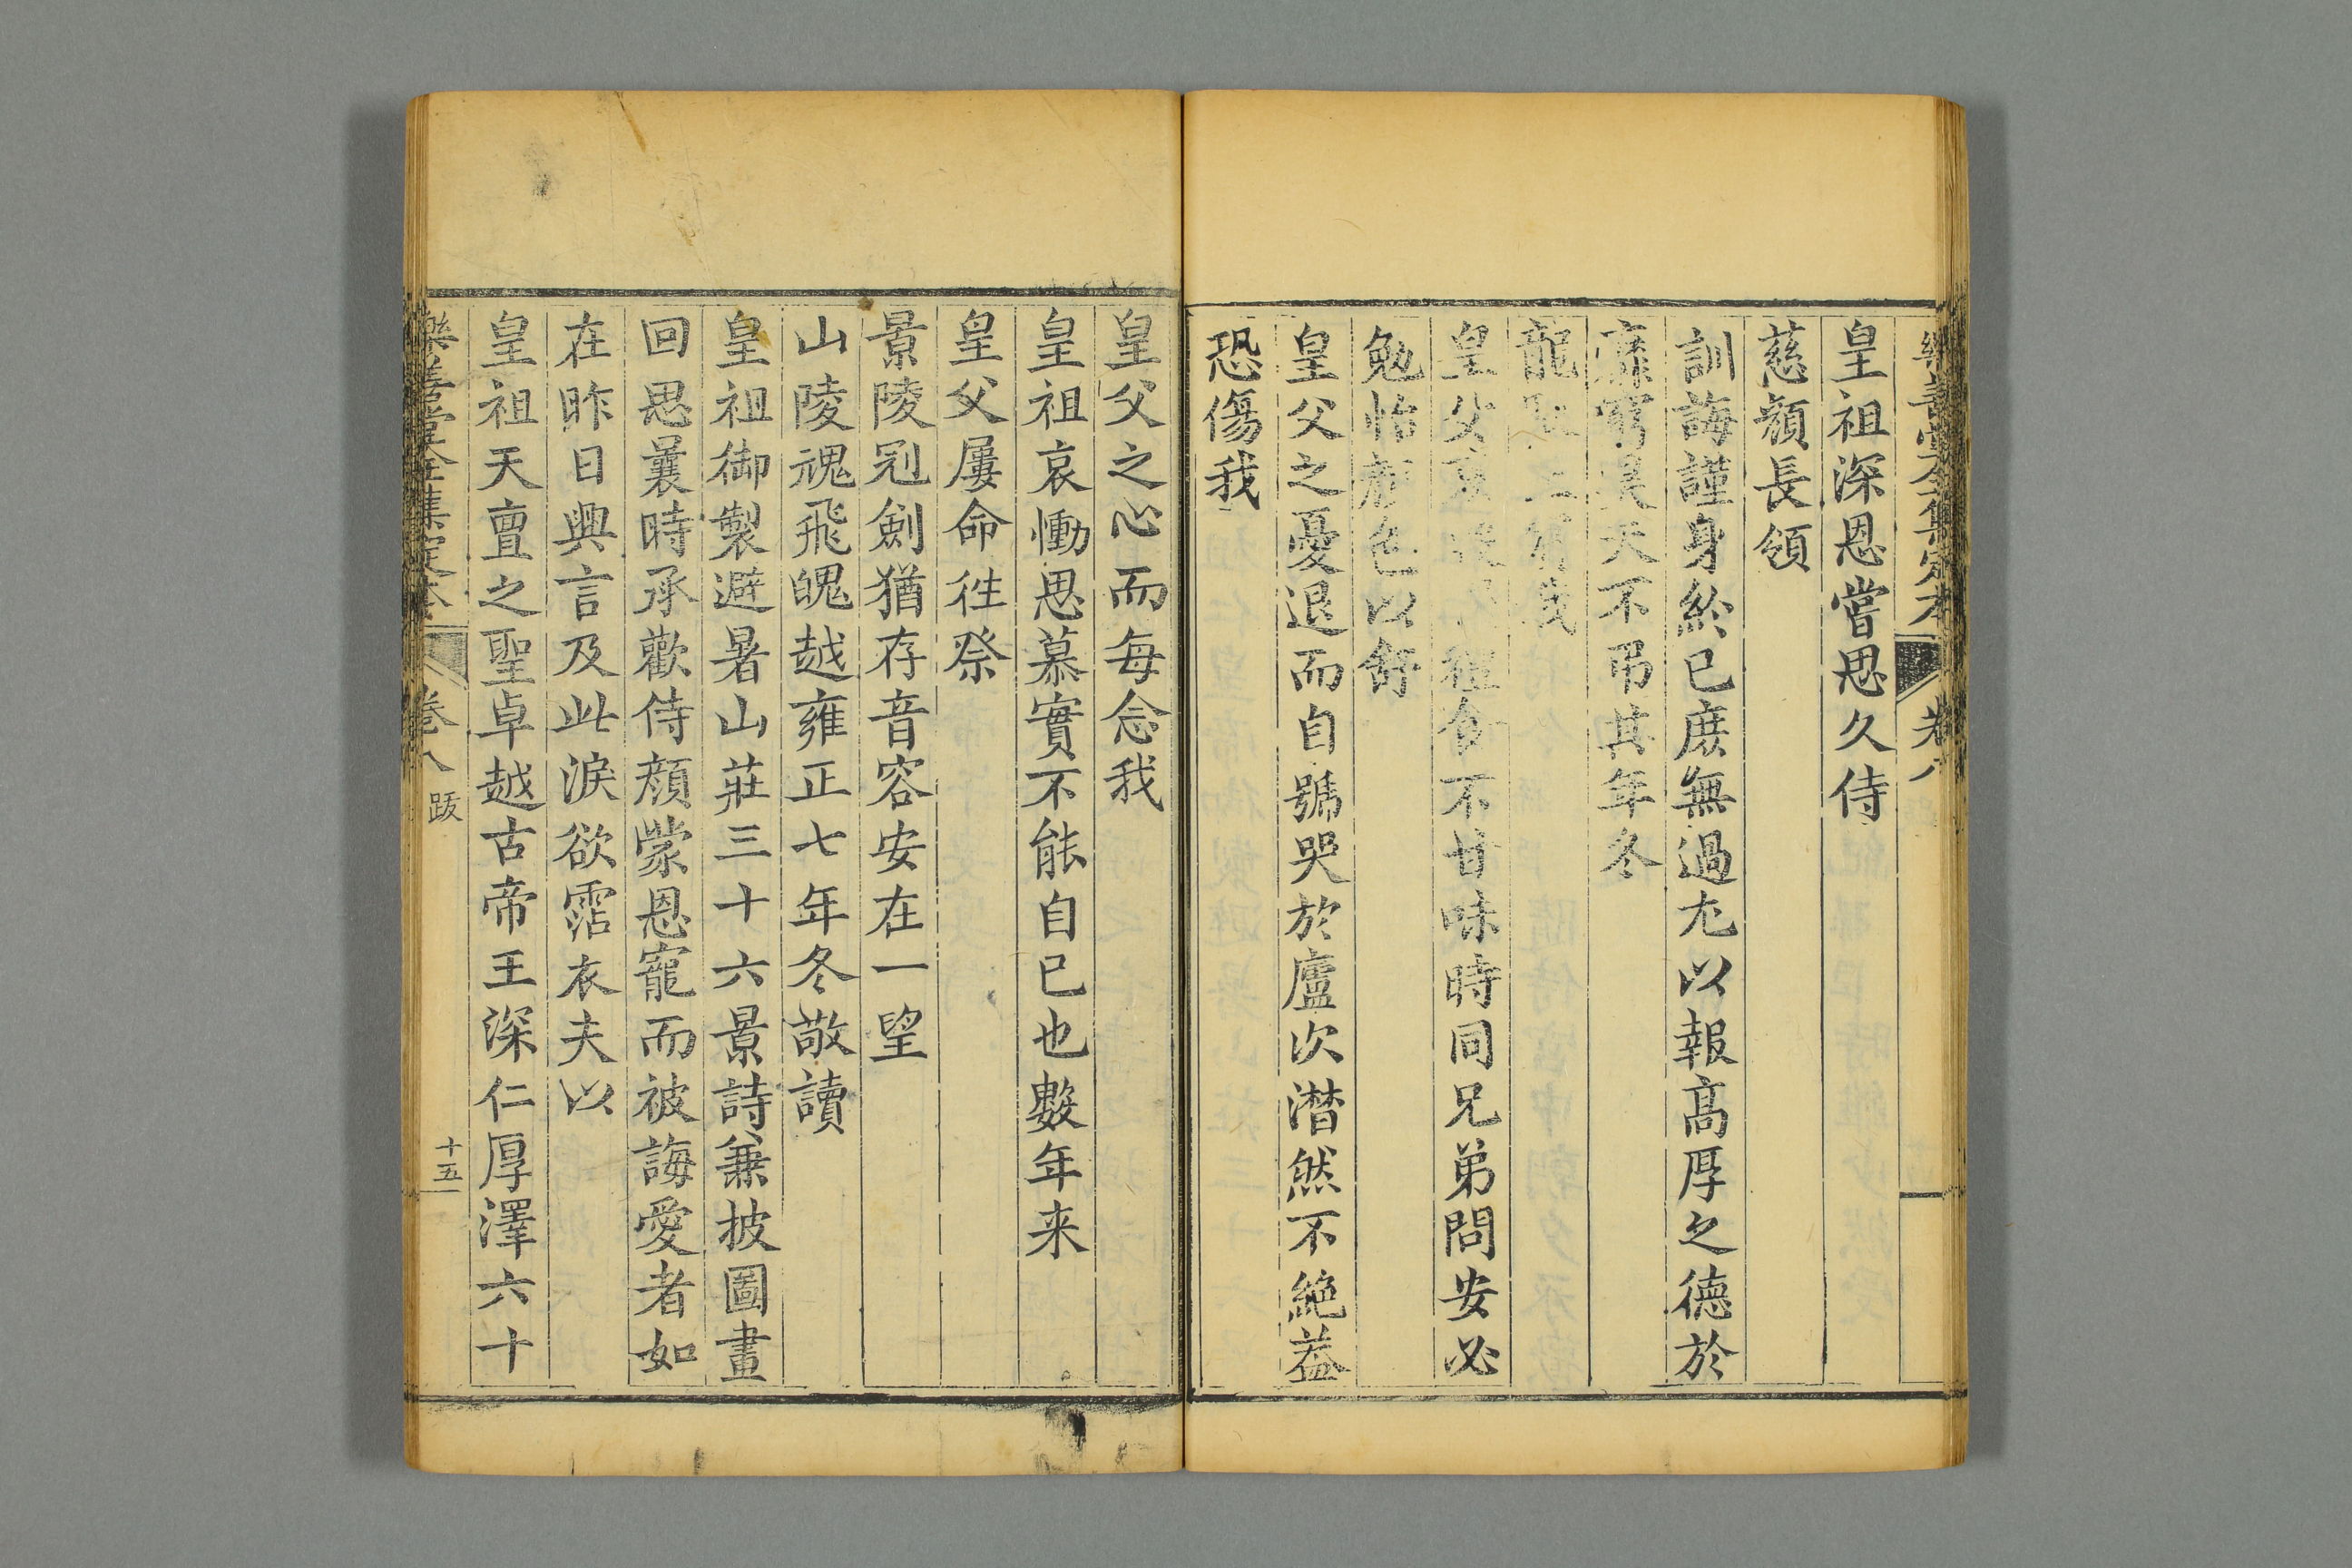 樂善堂全集定本 卷八
皇祖深恩嘗思久侍
慈顏長領
訓誨謹身飭已庶無過尤以報高厚之德於
昊天不弔其年冬
龍馭上賓我
皇父哀 食不甘味時同兄弟問安必
勉怡顏色以舒
皇父之憂退而自號哭於廬次潸然不絕益
恐傷我
皇父之心而每念我
皇祖哀慟思慕實不能自已也數年来
皇父屢命徃祭
景陵冠劍猶存音容安在一望
山陵魂飛魄越雍正七年冬敬讀
皇祖御製避暑山莊三十六景詩兼披圖畫
回思曩時承歡侍顏蒙恩寵而被誨愛者如
在昨日興言及此淚欲霑衣夫以
皇祖天亶之聖卓越古帝王深仁厚澤六十
樂善堂全集定本 卷八 跋 十五